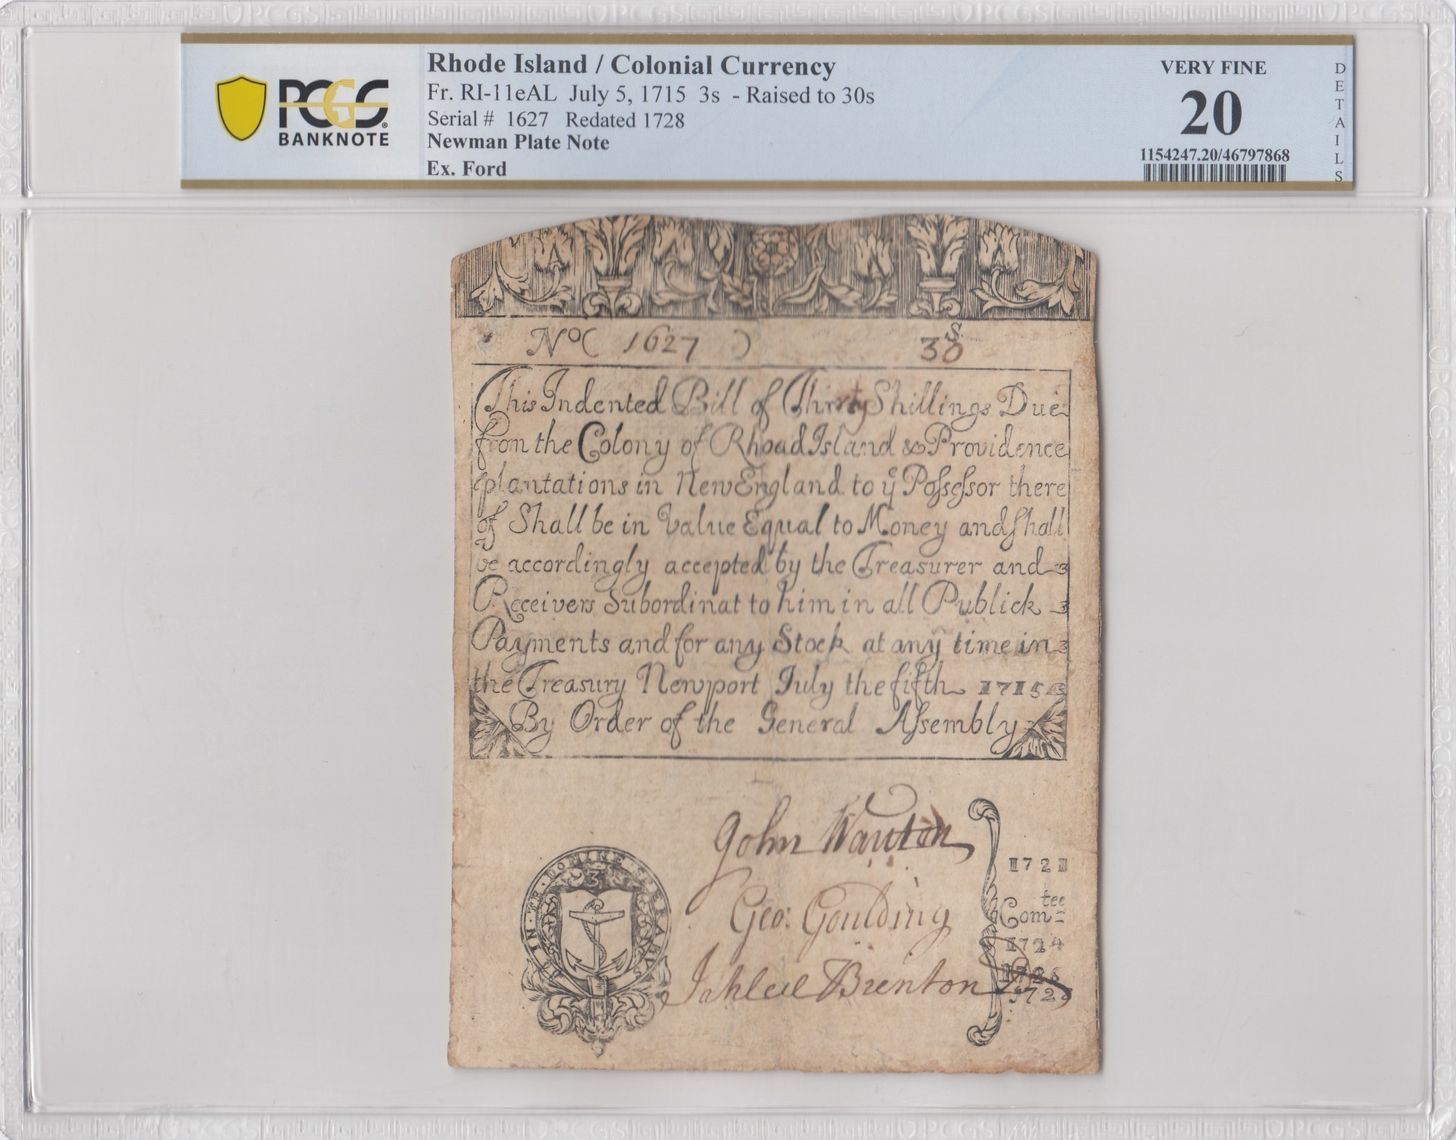 Rhode Island / Colonial Currency
Fr. RI-11eAL July 5, 1715 3s - Raised to 30s
Serial # 1627 Redated 1728
Newman Plate Note
Ex. Ford
PCGS
BANKNOTE
VERY FINE
20
1154247.20/46797868
DETAILS
No( 1627 ) 30s
This Indented Bill of Thirty Shillings Due
from the Colony of Rhoad Island & Providence
plantations in New England to ye Possessor there
of Shall be in Value Equal to Money and Shall
be accordingly accepted by the Treasurer and
Receivers Subordinat to him in all Publick
Payments and for any Stock at any time in
the Treasury Newport July the fifth 1715
By Order of the General Assembly
John Wanton
Geo: Goulding
Jahleel Brenton
IN TE DOMINE SPERAMUS
3
1721
Comtee
1724
1726
1728